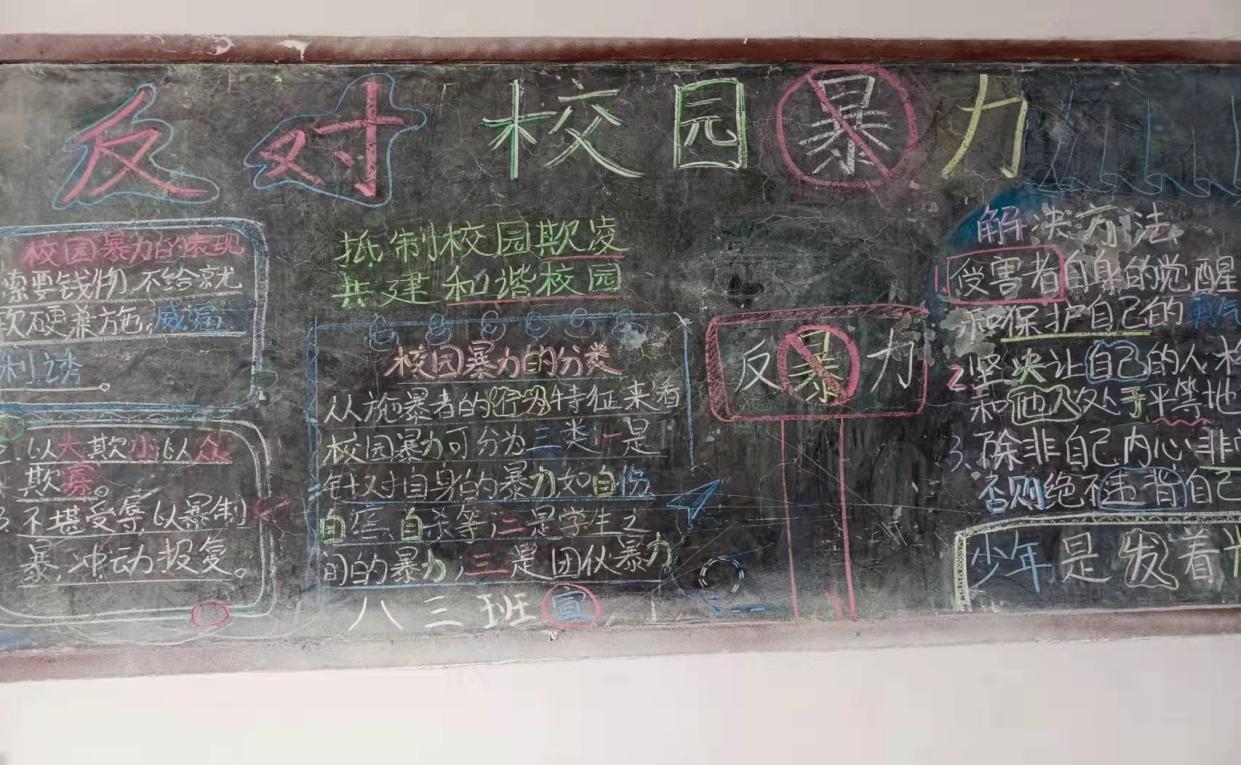 反对校园暴力
校园暴力的表现
索要钱物,不给就
软硬兼施,威逼
利诱。
2.以大欺小以众
欺寡。
3.不堪受辱以暴制
暴,冲动报复。
抵制校园欺凌
共建和谐校园
校园暴力的分类
从施暴者的行为特征来看
校园暴力可分为三类一是
针对自身的暴力如自伤
自虐、自杀等,二是学生之
间的暴力,三是团伙暴力
八三班宣
反暴力
解决方法
受害者自身的觉醒
和保护自己的勇气
2.坚决让自己的人格
和他人处于平等地
3、除非自己内心非常
否则绝不违背自己
少年是发着光